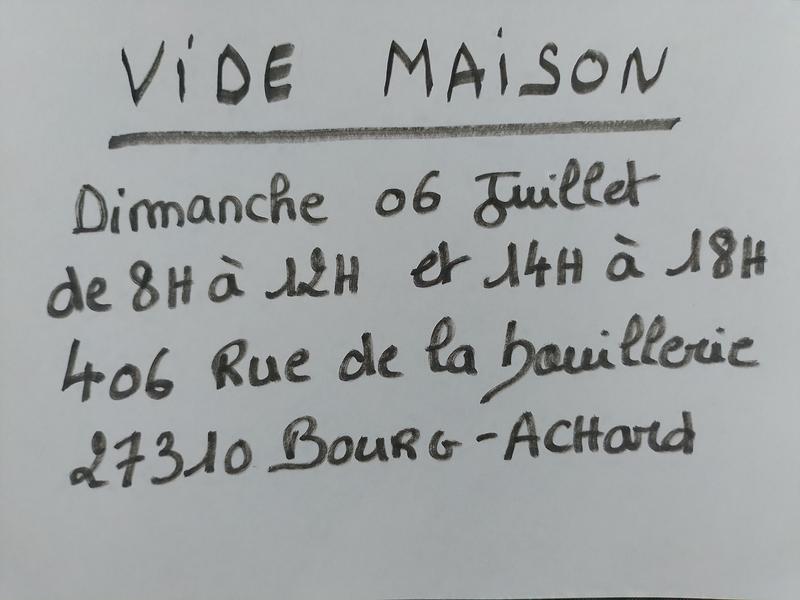 ViDE MAiSON
Dimanche 06 Juillet
de 8H à 12H et 14H à 18H
406 Rue de la houillerie
27310 BOURG-ACHard